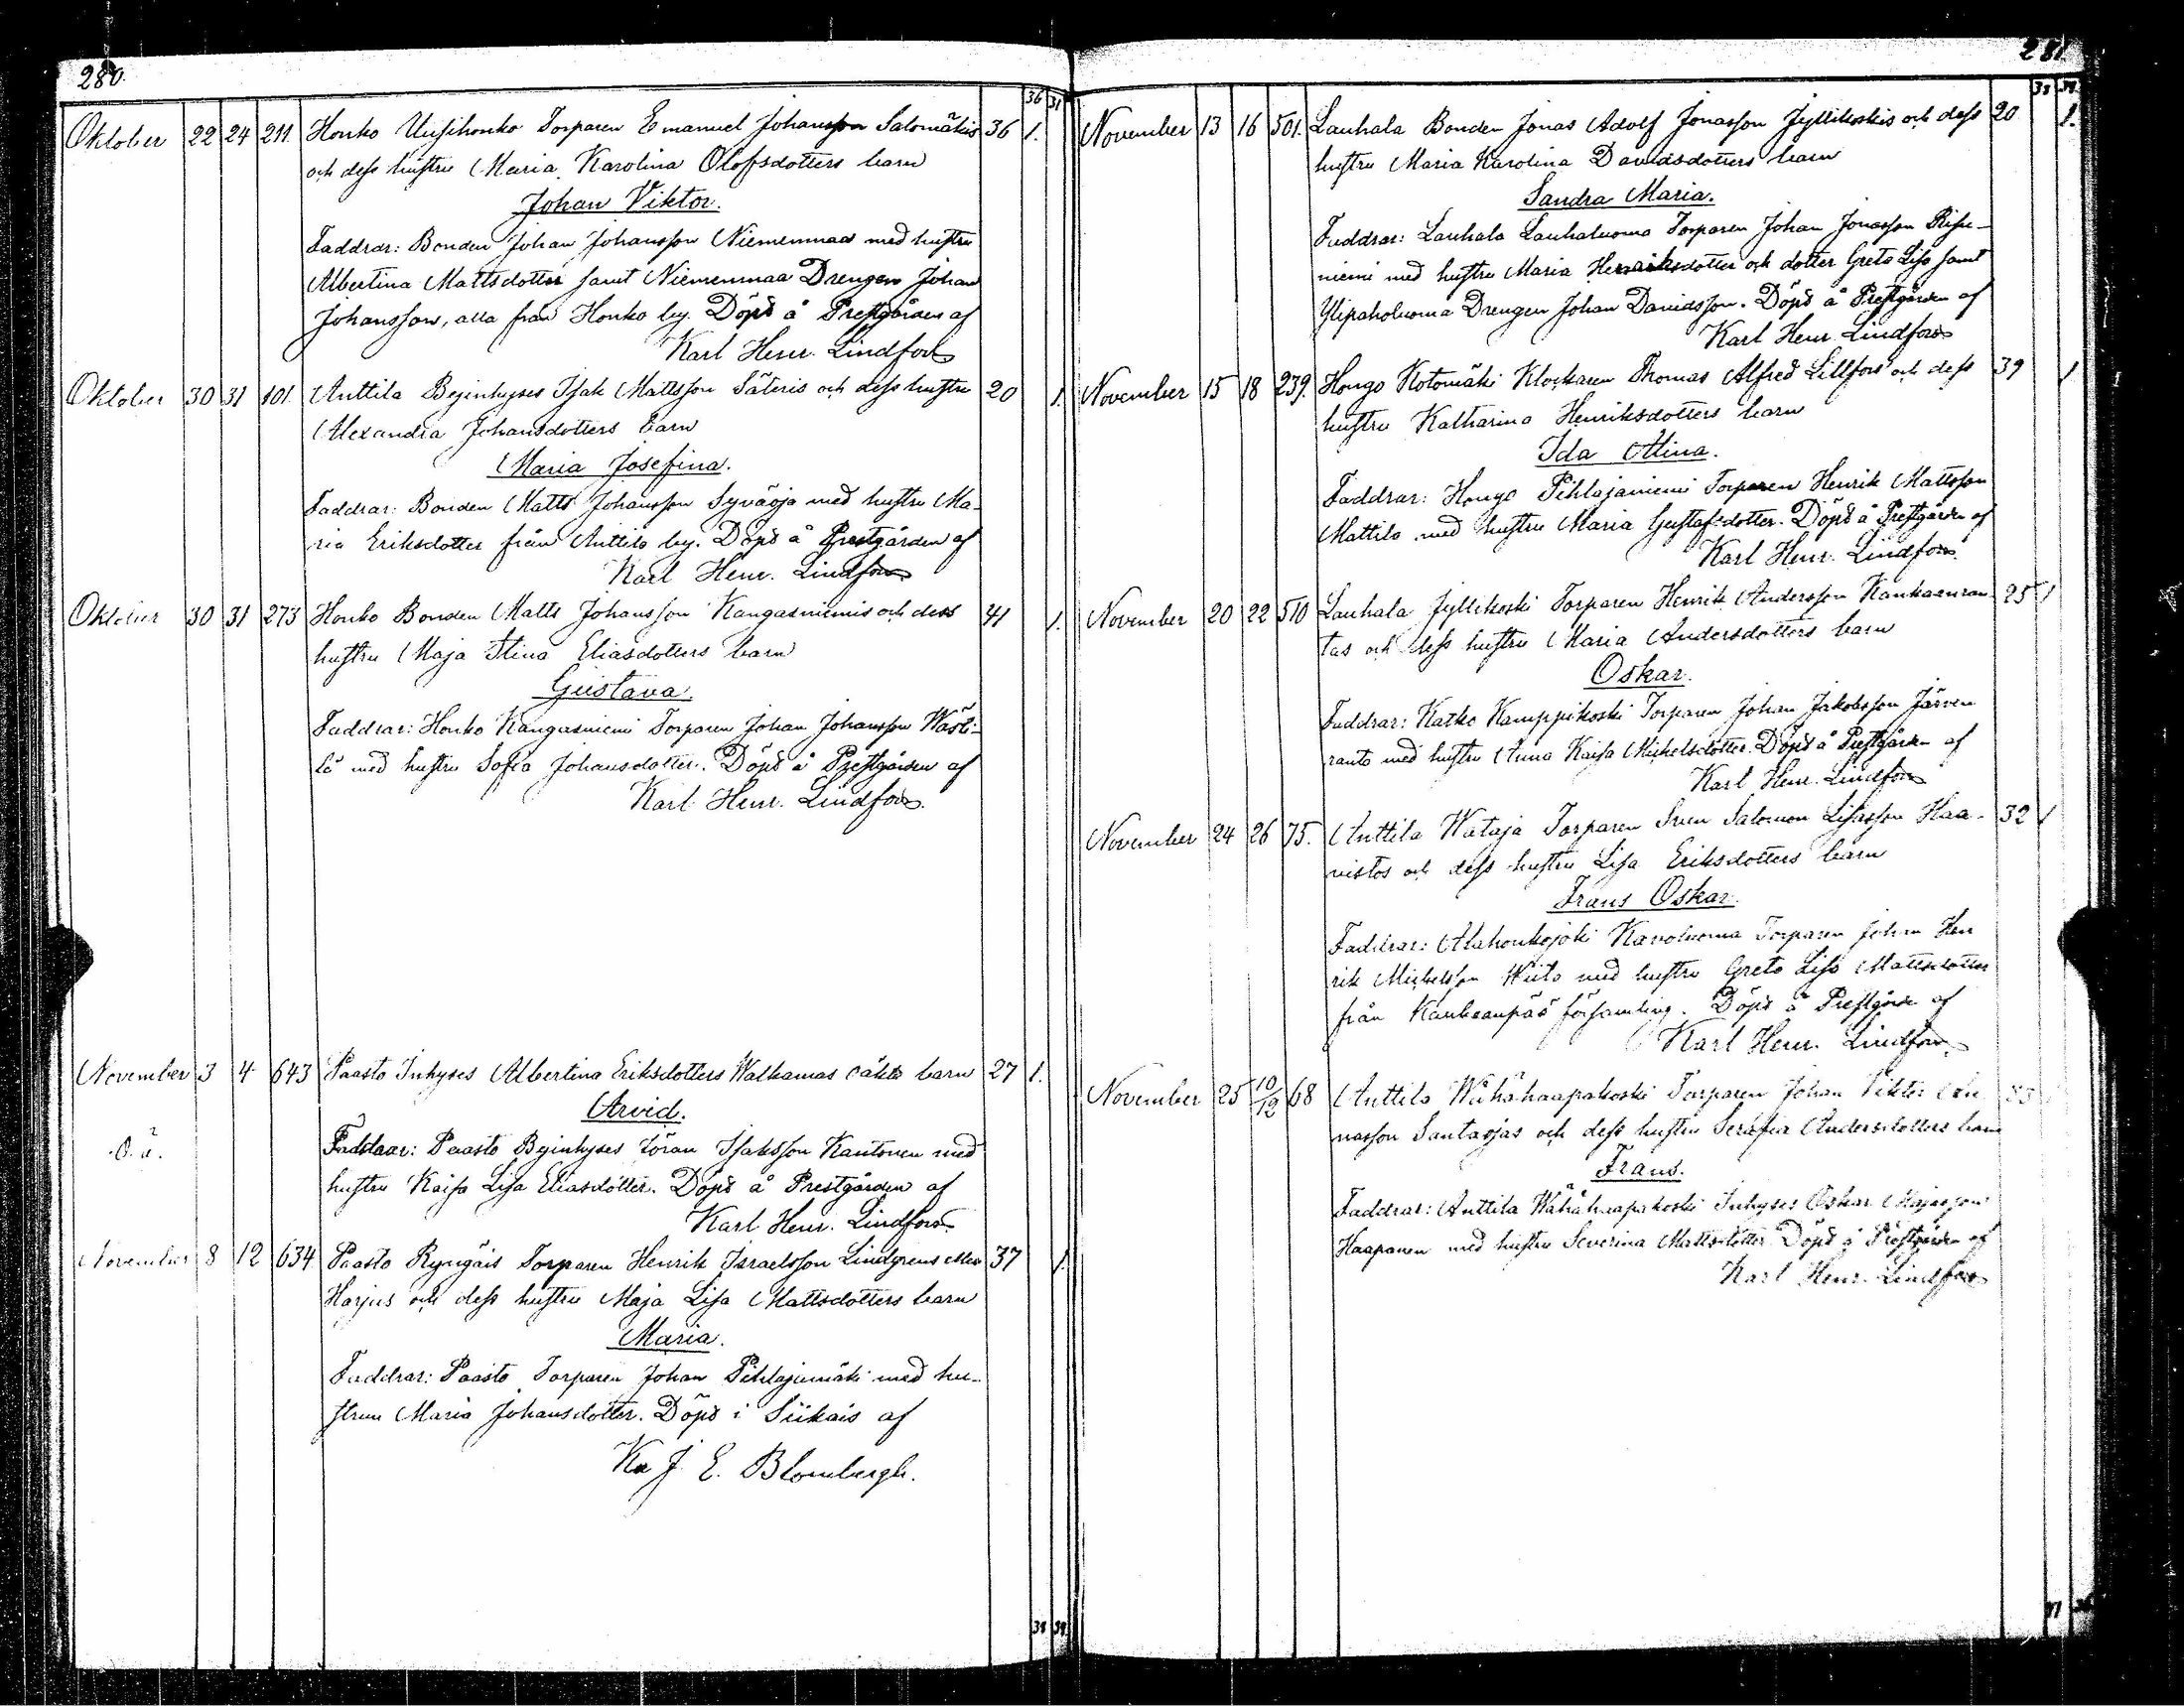 280.
36 31
Oktober 22 24 211. Honko Uusihonko Torparen Emanuel Johansson Salomäkis 36 1.
och dess hustru Maria Karolina Olofsdotters barn
Johan Viktor.
Faddrar: Bonden Johan Johansson Niemenmaa med hustru
Albertina Mattsdotter samt Niemenmaa Drengen Johan
Johansson, alla från Honko by. Döpt å Prestgården af
Karl Henr. Lindfors
Oktober 30 31 101. Anttila Byinhyses Isak Mattsson Säteris och dess hustru 20 1.
Alexandra Johansdotters barn
Maria Josefina.
Faddrar: Bonden Matts Johansson Syväoja med hustru Ma-
ria Eriksdotter från Anttila by. Döpt å Prestgården af
Karl Henr. Lindfors
Oktober 30 31 273 Honko Bonden Matts Johansson Kangasniemis och dess 41 1.
hustru Maja Stina Eliasdotters barn
Gustava.
Faddrar: Honko Kangasniemi Torparen Johan Johansson Wästi-
lä med hustru Sofia Johansdotter. Döpt å Prestgården af
Karl Henr. Lindfors.
November 3 4 643 Paasto Inhyses Albertina Eriksdotters Walkamas oäkta barn 27 1.
Arvid.
o. ä. Faddrar: Paasto Byinhyses Göran Isaksson Kantonen med
hustru Kaisa Lisa Eliasdotter. Döpt å Prestgården af
Karl Henr. Lindfors
November 8 12 634 Paasto Ryngäis Torparen Henrik Israelsson Lindgrens eller 37 1
Harjus och dess hustru Maja Lisa Mattsdotters barn
Maria.
Faddrar: Paasto Torparen Johan Pihlajamäki med hu-
strun Maria Johansdotter. Döpt i Siikais af
J. E. Blombergh.
38 39
281.
November 13 16 501. Lauhala Bonden Jonas Adolf Jonasson Jyllikoskis och dess 20 1.
hustru Maria Karolina Davidsdotters barn
Sandra Maria.
Faddrar: Lauhala Lauhaluoma Torparen Johan Jonasson Risu-
niemi med hustru Maria Henriksdotter och dotter Greta Lisa samt
Ylipaholuoma Drengen Johan Davidsson. Döpt å Prestgården af
Karl Henr. Lindfors
November 15 18 239. Hongo Kotomäki Klockaren Thomas Alfred Lillfors och dess 39 1
hustru Katharina Henriksdotters barn
Ida Alina.
Faddrar: Hongo Pihlajaniemi Torparen Henrik Mattsson
Mattila med hustru Maria Gustafsdotter. Döpt å Prestgården af
Karl Henr. Lindfors.
November 20 22 510 Lauhala Jyllikoski Torparen Henrik Andersson Kankaanran- 25 1
tas och dess hustru Maria Andersdotters barn
Oskar.
Faddrar: Katko Kamppikoski Torparen Johan Jakobsson Järven
ranta med hustru Anna Kaisa Michelsdotter. Döpt å Prestgården af
Karl Henr. Lindfors
November 24 26 75. Anttila Wataja Torparen Sven Salomon Lisasson Haa- 32 1
vistos och dess hustru Lisa Eriksdotters barn
Frans Oskar.
Faddrar: Alahonkajoki Karoluoma Torparen Johan Hen
rik Michelsson Wiita med hustru Greta Lisa Mattsdotter
från Kauhanpää församling. Döpt å Prestgården af
Karl Henr. Lindfors
November 25 10/12 68 Anttila Wähähaapakoski Torparen Johan Viktor
nasson Santaojas och dess hustru Serafia Andersdotters barn
Frans.
Faddrar: Anttila Wähähaapakoski Inhyses Oskar Majasson
Haapanen med hustru Severina Mattsdotter Döpt å Prestgården af
Karl Henr. Lindfors